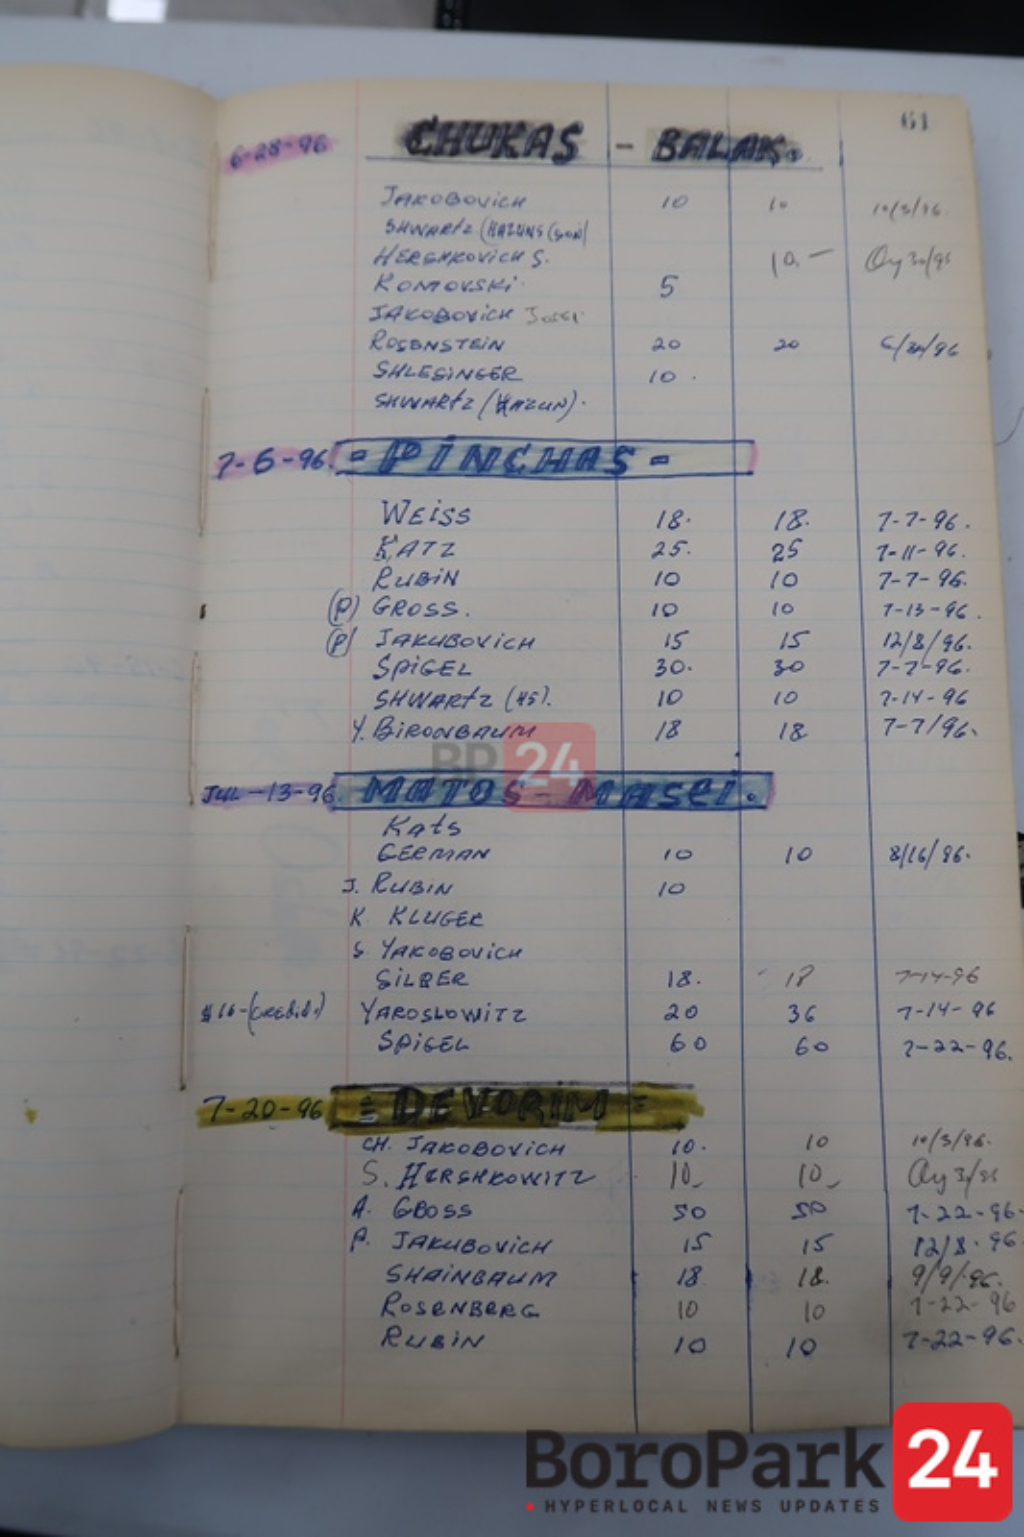 61
6-28-96 CHUKAS - BALAK.
JAKOBOVICH 10 10 10/3/96.
SHWARTZ (HAZUNS (SON)
HERSHKOVICH S. 10.- 30/96
KOMOVSKI 5
JAKOBOVICH
ROSENSTEIN 20 20 6/30/96
SHLESINGER 10.
SHWARTZ (HAZUN).
7-6-96. - PINCHAS -
WEISS 18. 18. 7-7-96.
KATZ 25. 25 7-11-96.
RUBIN 10 10 7-7-96.
(P) GROSS. 10 10 7-13-96.
(P) JAKUBOVICH 15 15 12/8/96.
SPIGEL 30. 30 7-7-96.
SHWARTZ (HS). 10 10 7-14-96
Y. BIRONBAUM 18 18 7-7/96.
BP 24
JUL-13-96. MATOS - MASEI.
Kats
GERMAN 10 10 8/16/96.
J. RUBIN 10
K. KLUGER
S YAKOBOVICH
SILBER 18. 18 7-14-96
$16-(CREDIT) YAROSLOWITZ 20 36 7-14-96
SPIGEL 60 60 7-22-96.
7-20-96 = DEVORIM =
CH. JAKOBOVICH 10. 10 10/3/96.
S. HERSHKOWITZ 10- 10-
A. GROSS 50 50 7-22-96.
P. JAKUBOVICH 15 15 12/8.96
SHAINBAUM 18 18. 9/9/96.
ROSENBERG 10 10 7-22-96
RUBIN 10 10 7-22-96.
BoroPark 24
HYPERLOCAL NEWS UPDATES